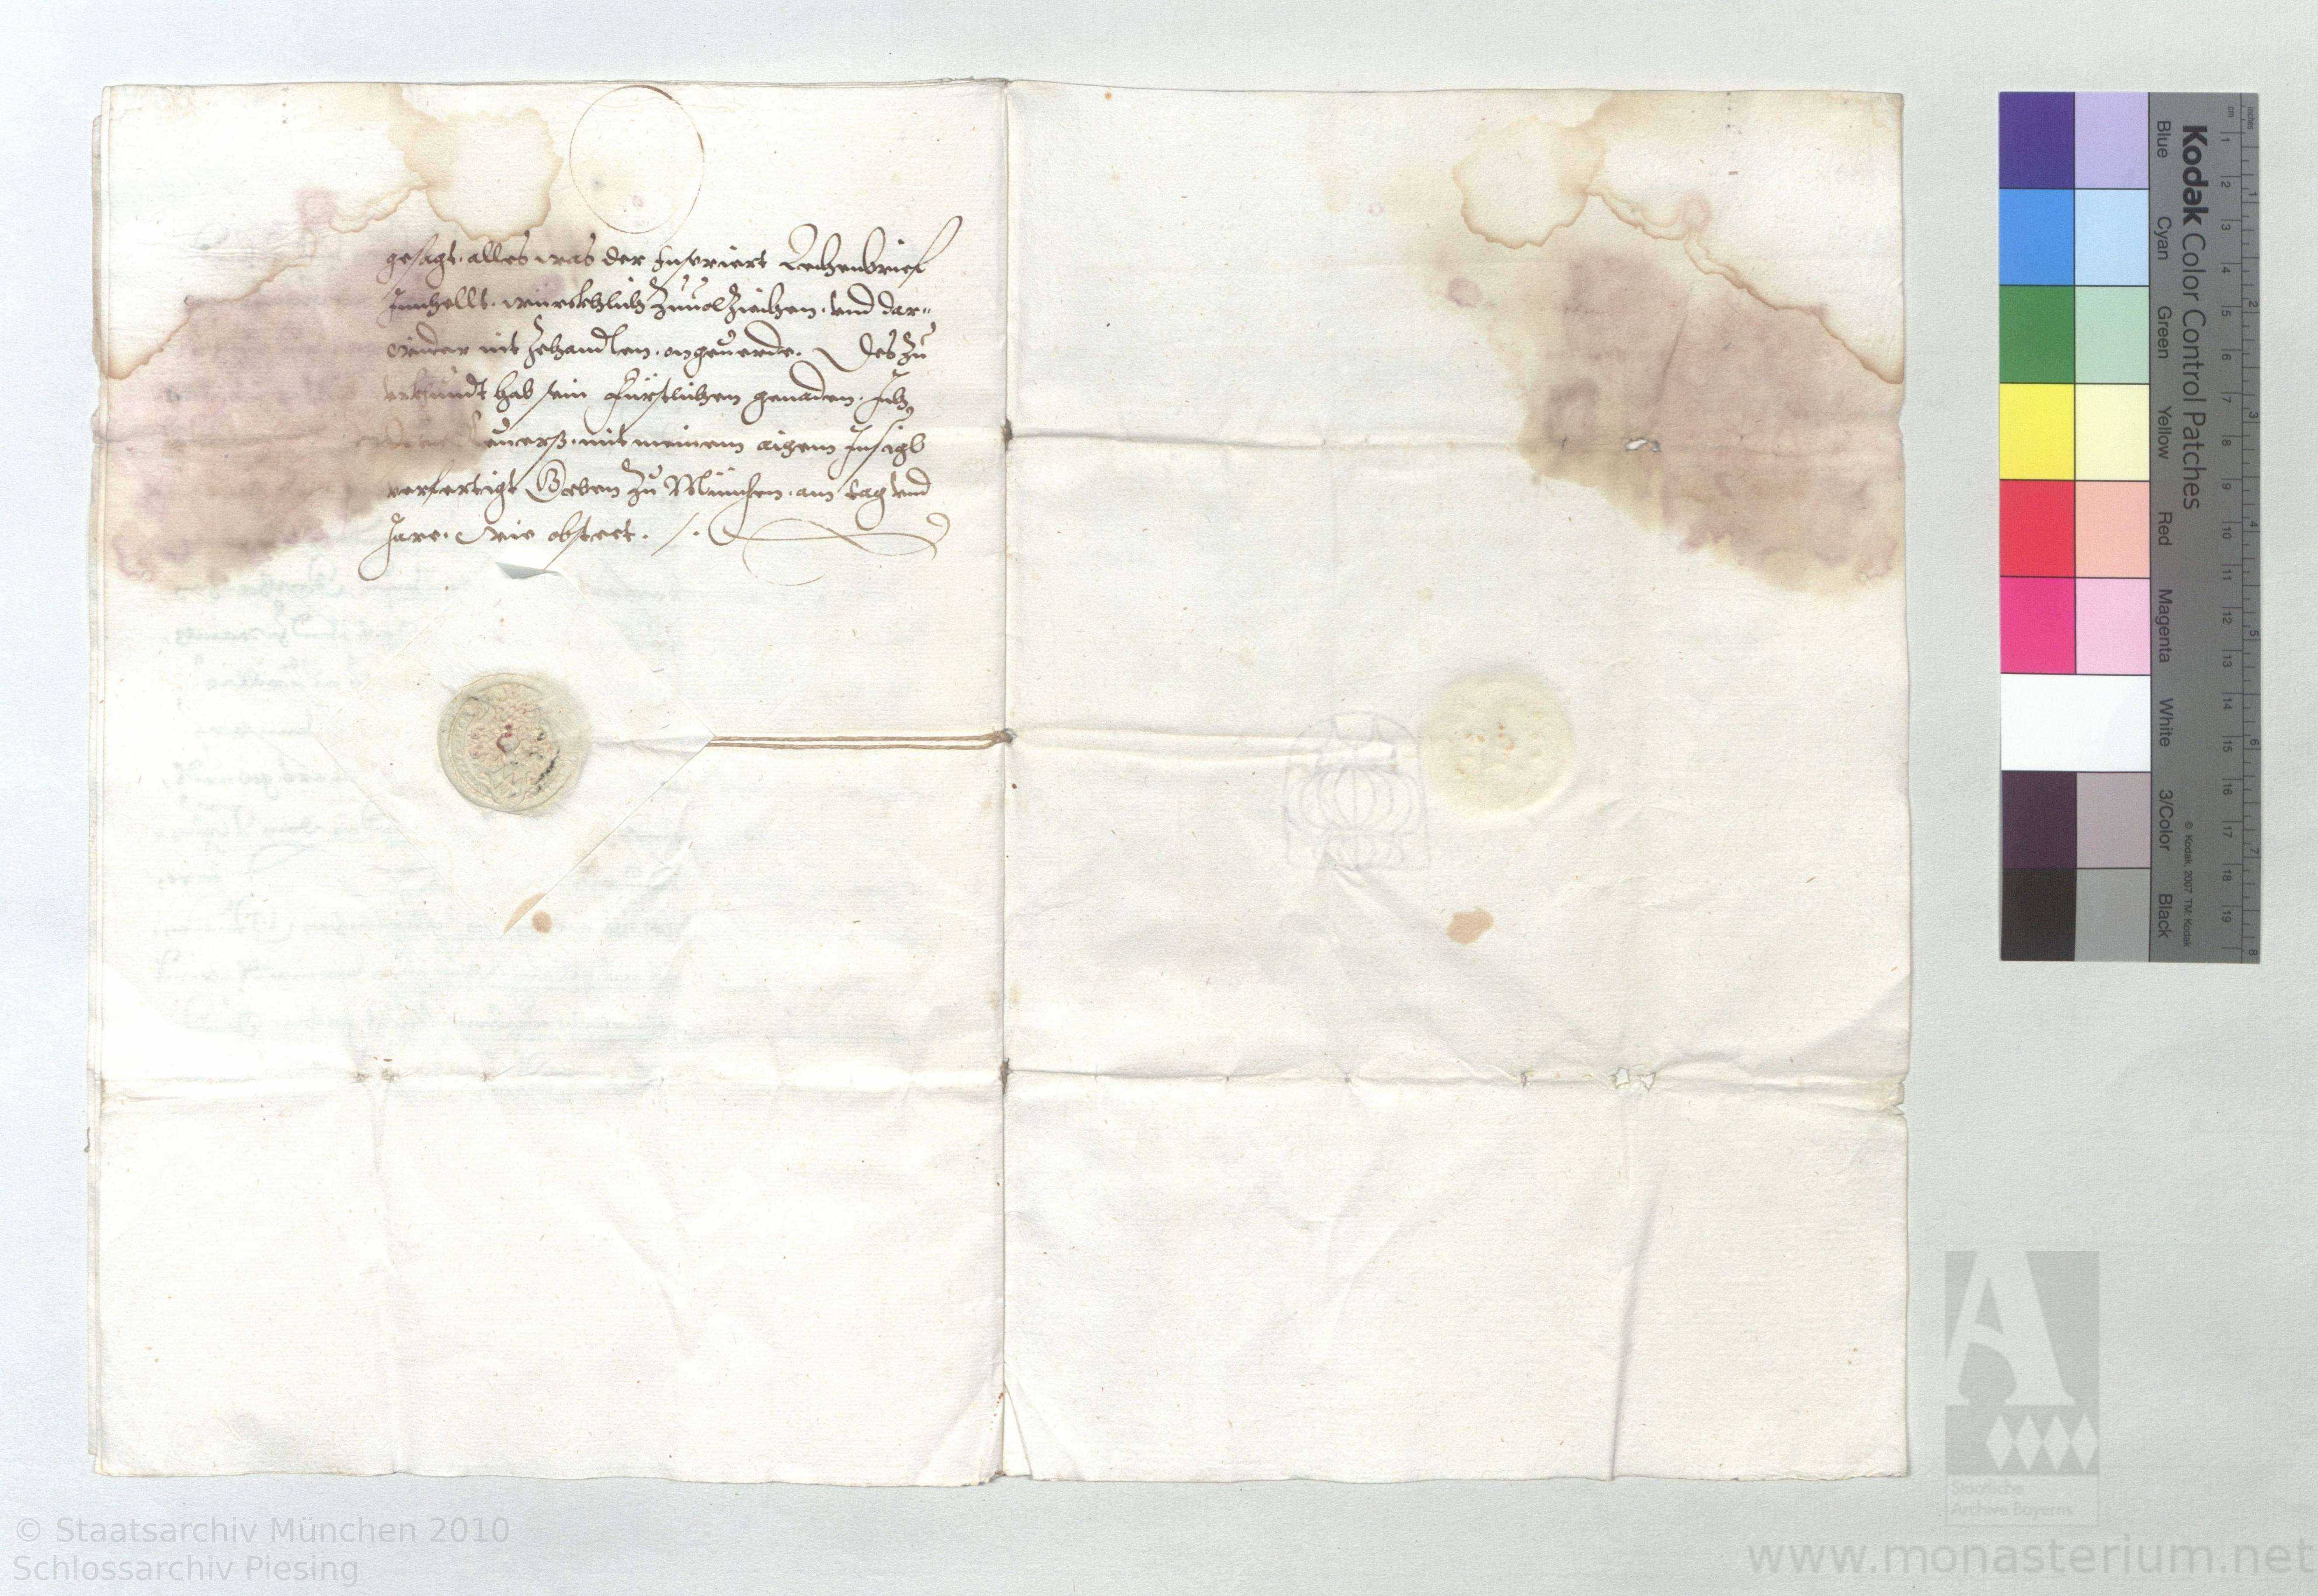 gesagt. alles was der Inseriert Lechenbrief
Innhellt. würckhlich zuuolziechen. vnd dar¬
wider nit zehandlen. on geuerde. Des zu
vrkhundt hab sein Fürstlichen genaden. Ich
mit meinem aigem Insigl
verfertigt Geben zu München. am tag vnd
Jare. Wie obsteet. /.
Kodak Color Control Patches
Blue
Cyan
Green
Yellow
Red
Magenta
White
3/Color
Black
© Kodak, 2007 TM: Kodak
cm 1 2 3 4 5 6 7 8 9 10 11 12 13 14 15 16 17 18 19
inches 1 2 3 4 5 6 7 8
Staatliche
Archive Bayerns
© Staatsarchiv München 2010
Schlossarchiv Piesing
www.monasterium.net